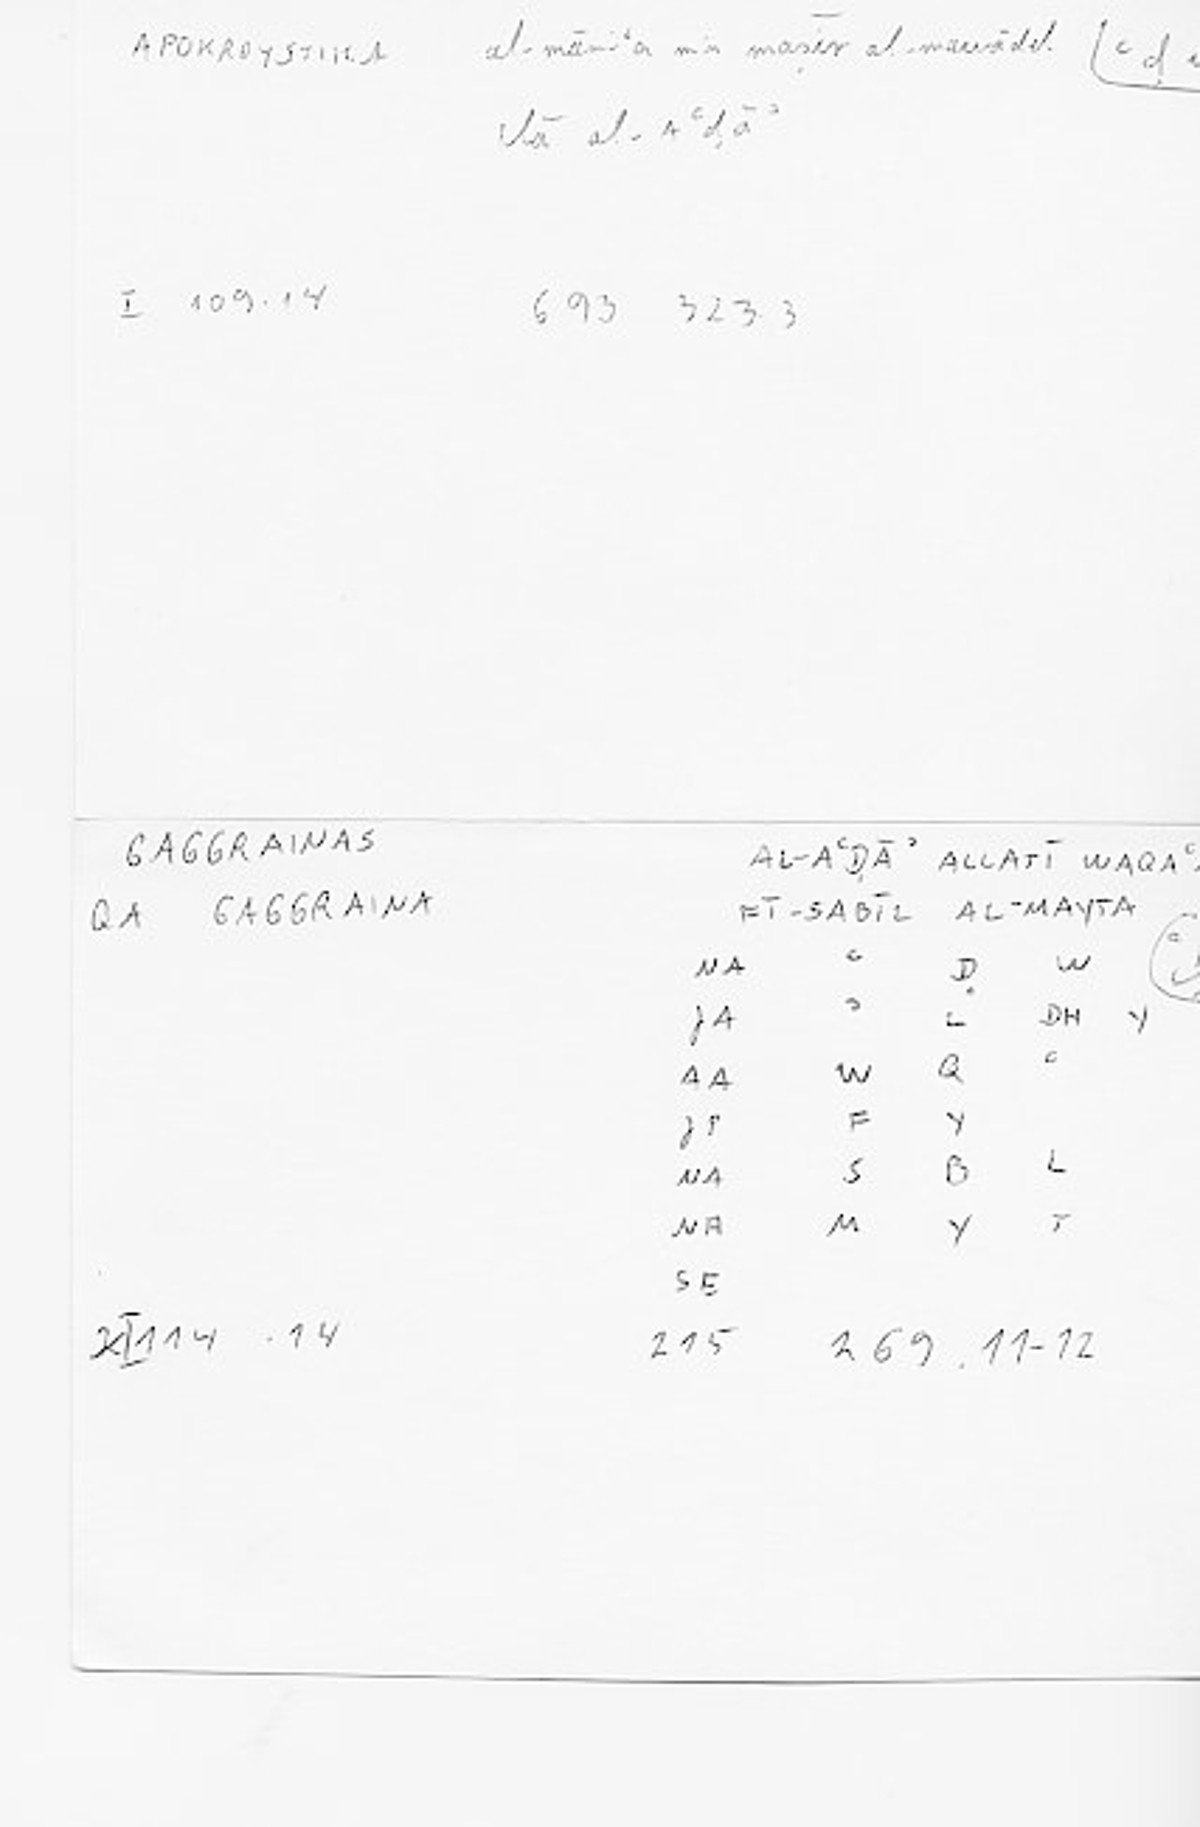 APOKROYSTIKA al-māniʿa min maṣīr al-mawādd [ʿ ḍ
ilā al-Aʿḍāʾ
I 109.14 693 323 3
GAGGRAINAS AL-AʿḌĀʾ ALLATĪ WAQAʿ
QA GAGGRAINA FĪ-SABĪL AL-MAYTA
NA ʿ Ḍ W
JA ʾ L DH Y
AA W Q ʿ
JP F Y
NA S B L
NA M Y T
SE
II 114 .14 215 269.11-12